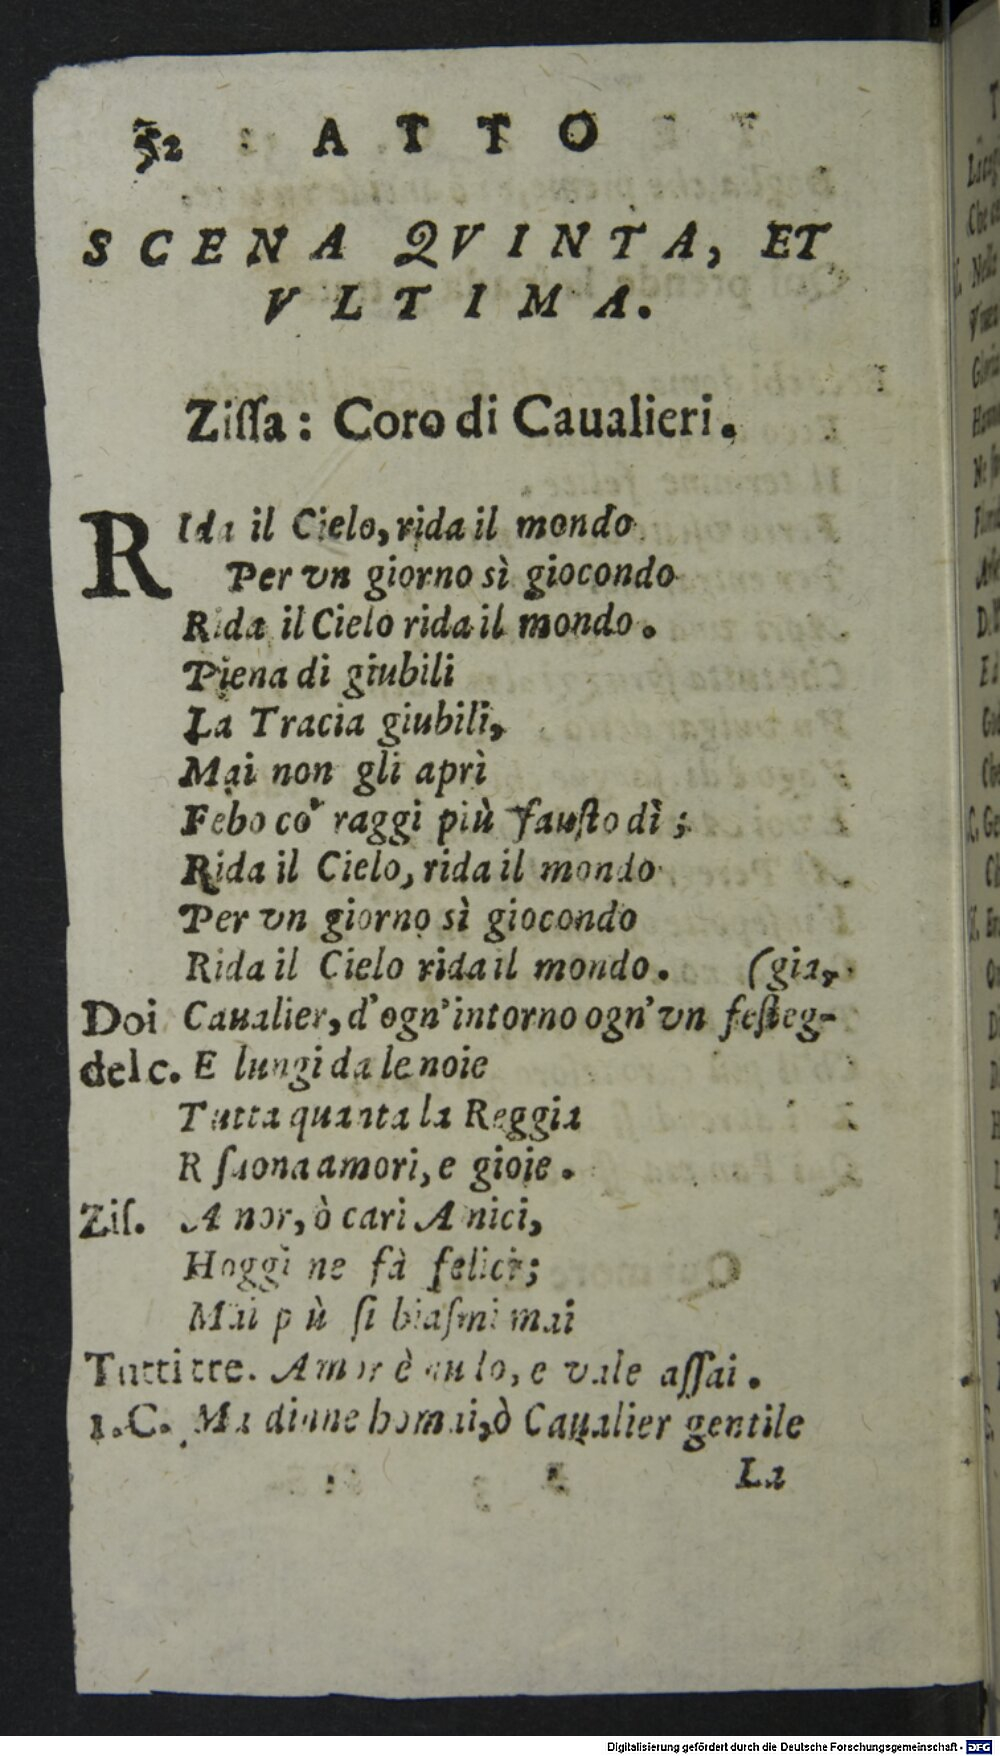 52 ATTO
SCENA QVINTA, ET
VLTIMA.
Ziſſa: Coro di Caualieri.
RIda il Cielo, rida il mondo
Per vn giorno sì giocondo
Rida il Cielo rida il mondo.
Piena di giubili
La Tracia giubili,
Mai non gli aprì
Febo co' raggi più fauſto dì;
Rida il Cielo, rida il mondo
Per vn giorno sì giocondo
Rida il Cielo rida il mondo. (gia,
Doi Caualier, d'ogn'intorno ogn'vn feſteg-
del c. E lungi da le noie
Tutta quanta la Reggia
R ſuona amori, e gioie.
Ziſ. Amor, ò cari Amici,
Hoggi ne fà felici;
Mai più ſi biaſmi mai
Tutti tre. Amor è , e vale aſſai.
1.C. Ma dinne homai, ò Caualier gentile
La
Digitalisierung gefördert durch die Deutsche Forschungsgemeinschaft - DFG